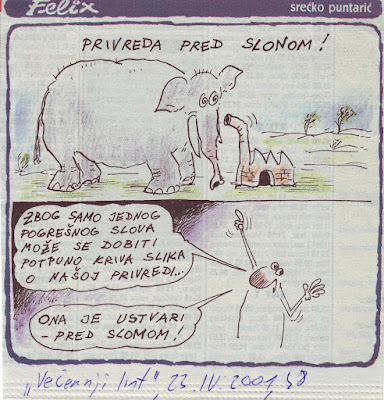 Felix
srećko puntarić
PRIVREDA PRED SLONOM!
ZBOG SAMO JEDNOG
POGREŠNOG SLOVA
MOŽE SE DOBITI
POTPUNO KRIVA SLIKA
O NAŠOJ PRIVREDI...
ONA JE USTVARI
- PRED SLOMOM!
"Večernji list", 23. IV. 2001, 38